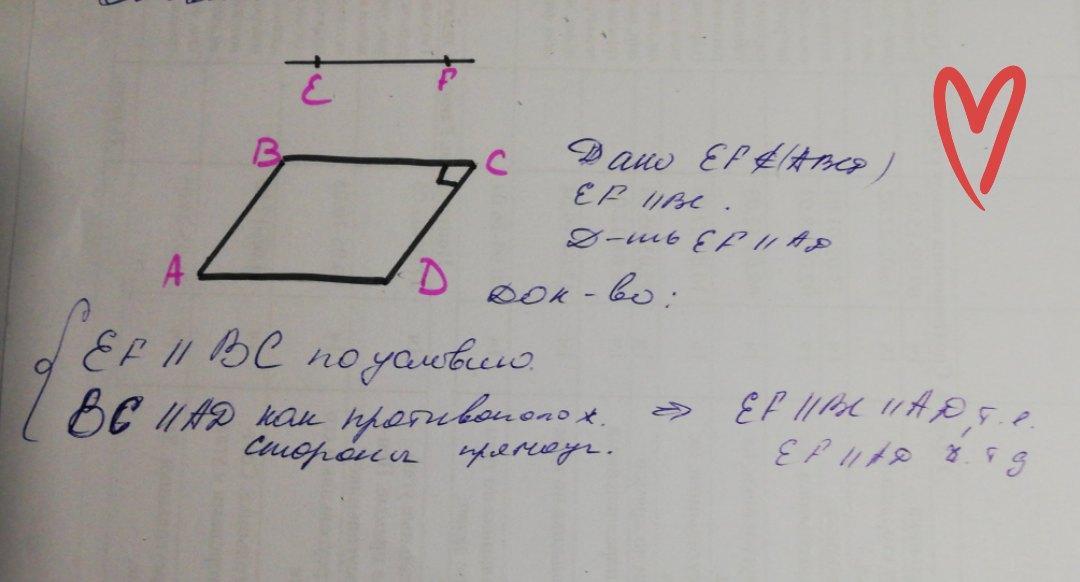 E F
B C
A D
Дано EF ⊄ (ABCD)
EF || BC.
Д-ть EF || AD
Док-во:
EF || BC по условию.
BC || AD как противополож. ⇒ EF || BC || AD, т.е.
стороны прямоуг. EF || AD ч.т.д